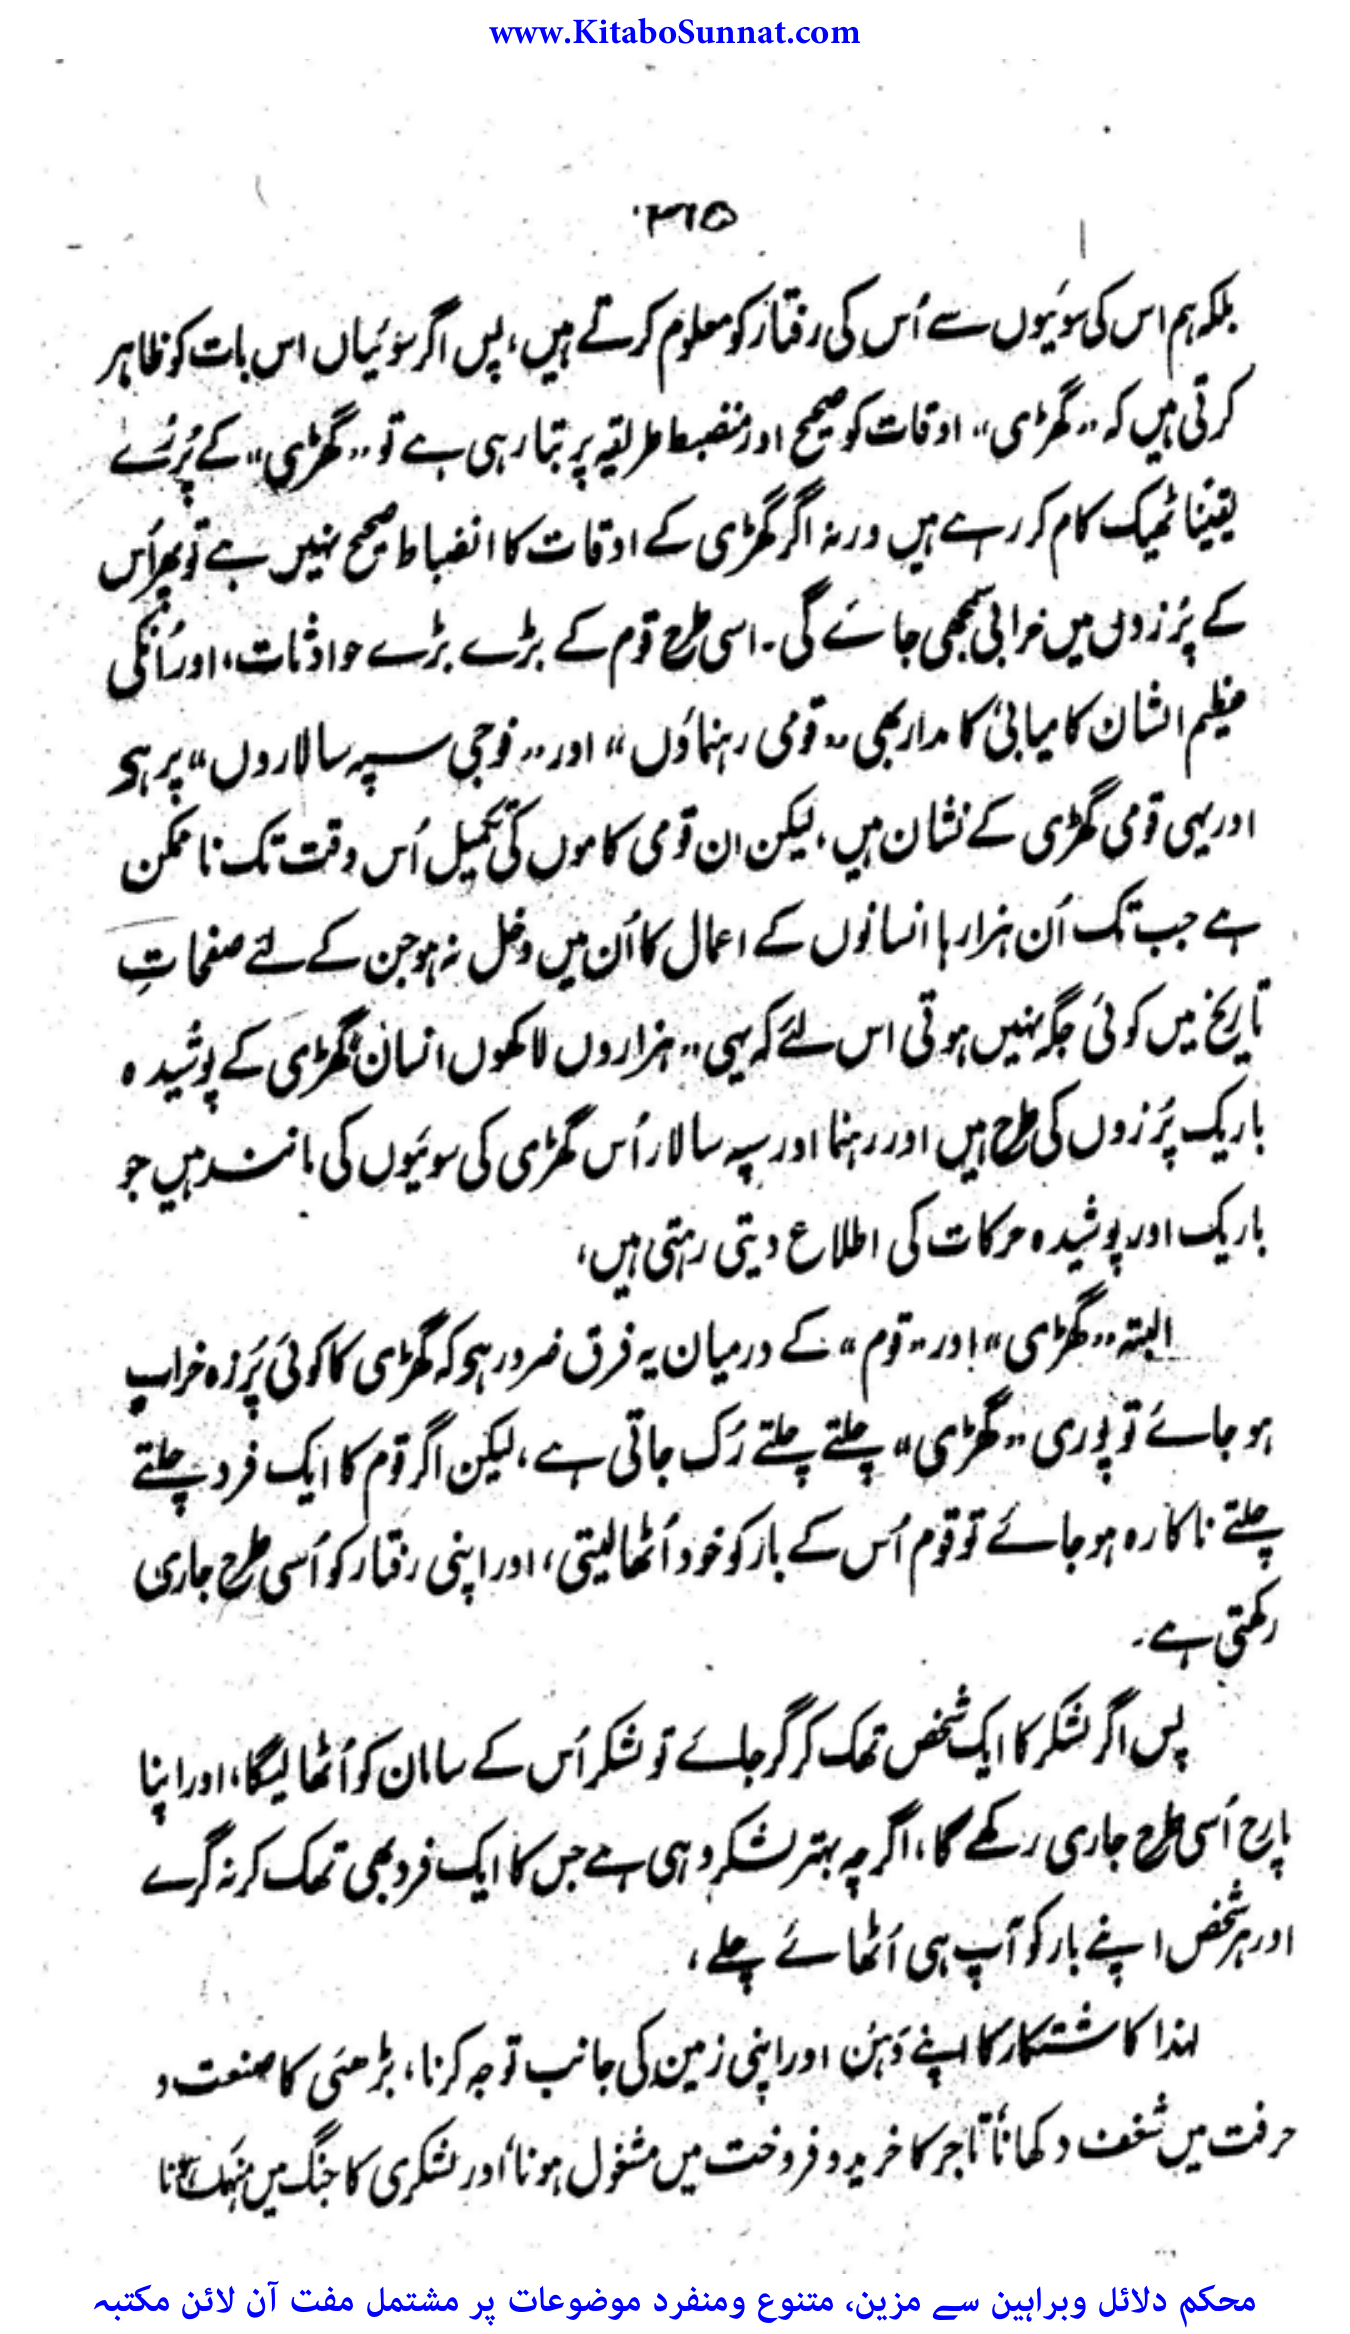 www.KitaboSunnat.com
۳۶۵
بلکہ ہم اس کی سوئیوں سے اُس کی رفتار کو معلوم کرتے ہیں، پس اگر سوئیاں اس بات کو ظاہر
کرتی ہیں کہ ”گھڑی“ اوقات کو صحیح اور منضبط طریقہ پر بتا رہی ہے تو ”گھڑی“ کے پُرزے
یقیناً ٹھیک کام کر رہے ہیں ورنہ اگر گھڑی کے اوقات کا انضباط صحیح نہیں ہے تو پھر اُس
کے پُرزوں میں خرابی سمجھی جائے گی۔ اسی طرح قوم کے بڑے بڑے حوادثات، اور اُنکی
عظیم الشان کامیابی کا مدار بھی ”قومی رہنماؤں“ اور ”فوجی سپہ سالاروں“ پر ہی ہے
اور یہی قومی گھڑی کے نشان ہیں، لیکن ان قومی کاموں کی تکمیل اُس وقت تک ناممکن
ہے جب تک اُن ہزارہا انسانوں کے اعمال کا اُن میں دخل نہ ہو جن کے لئے صفحاتِ
تاریخ میں کوئی جگہ نہیں ہوتی اس لئے کہ یہی ”ہزاروں لاکھوں انسان“ گھڑی کے پوشیدہ
باریک پُرزوں کی طرح ہیں اور رہنما اور سپہ سالار اُس گھڑی کی سوئیوں کی مانند ہیں جو
باریک اور پوشیدہ حرکات کی اطلاع دیتی رہتی ہیں،
البتہ ”گھڑی“ اور ”قوم“ کے درمیان یہ فرق ضرور ہے کہ گھڑی کا کوئی پُرزہ خراب
ہو جائے تو پوری ”گھڑی“ چلتے چلتے رُک جاتی ہے، لیکن اگر قوم کا ایک فرد چلتے
چلتے ناکارہ ہو جائے تو قوم اُس کے بار کو خود اُٹھا لیتی، اور اپنی رفتار کو اُسی طرح جاری
رکھتی ہے۔
پس اگر لشکر کا ایک شخص تھک کر گر جائے تو لشکر اُس کے سامان کو اُٹھا لیگا، اور اپنا
پارح اُسی طرح جاری رکھے گا، اگرچہ بہتر لشکر وہی ہے جس کا ایک فرد بھی تھک کر نہ گرے
اور ہر شخص اپنے بار کو آپ ہی اُٹھائے چلے،
لہذا کاشتکار کا اپنے اور اپنی زمین کی جانب توجہ کرنا، بڑھئی کا صنعت و
حرفت میں شغف دکھانا، تاجر کا خرید و فروخت میں مشغول ہونا، اور لشکری کا جنگ میں منہمک
محکم دلائل وبراہین سے مزین، متنوع ومنفرد موضوعات پر مشتمل مفت آن لائن مکتبہ